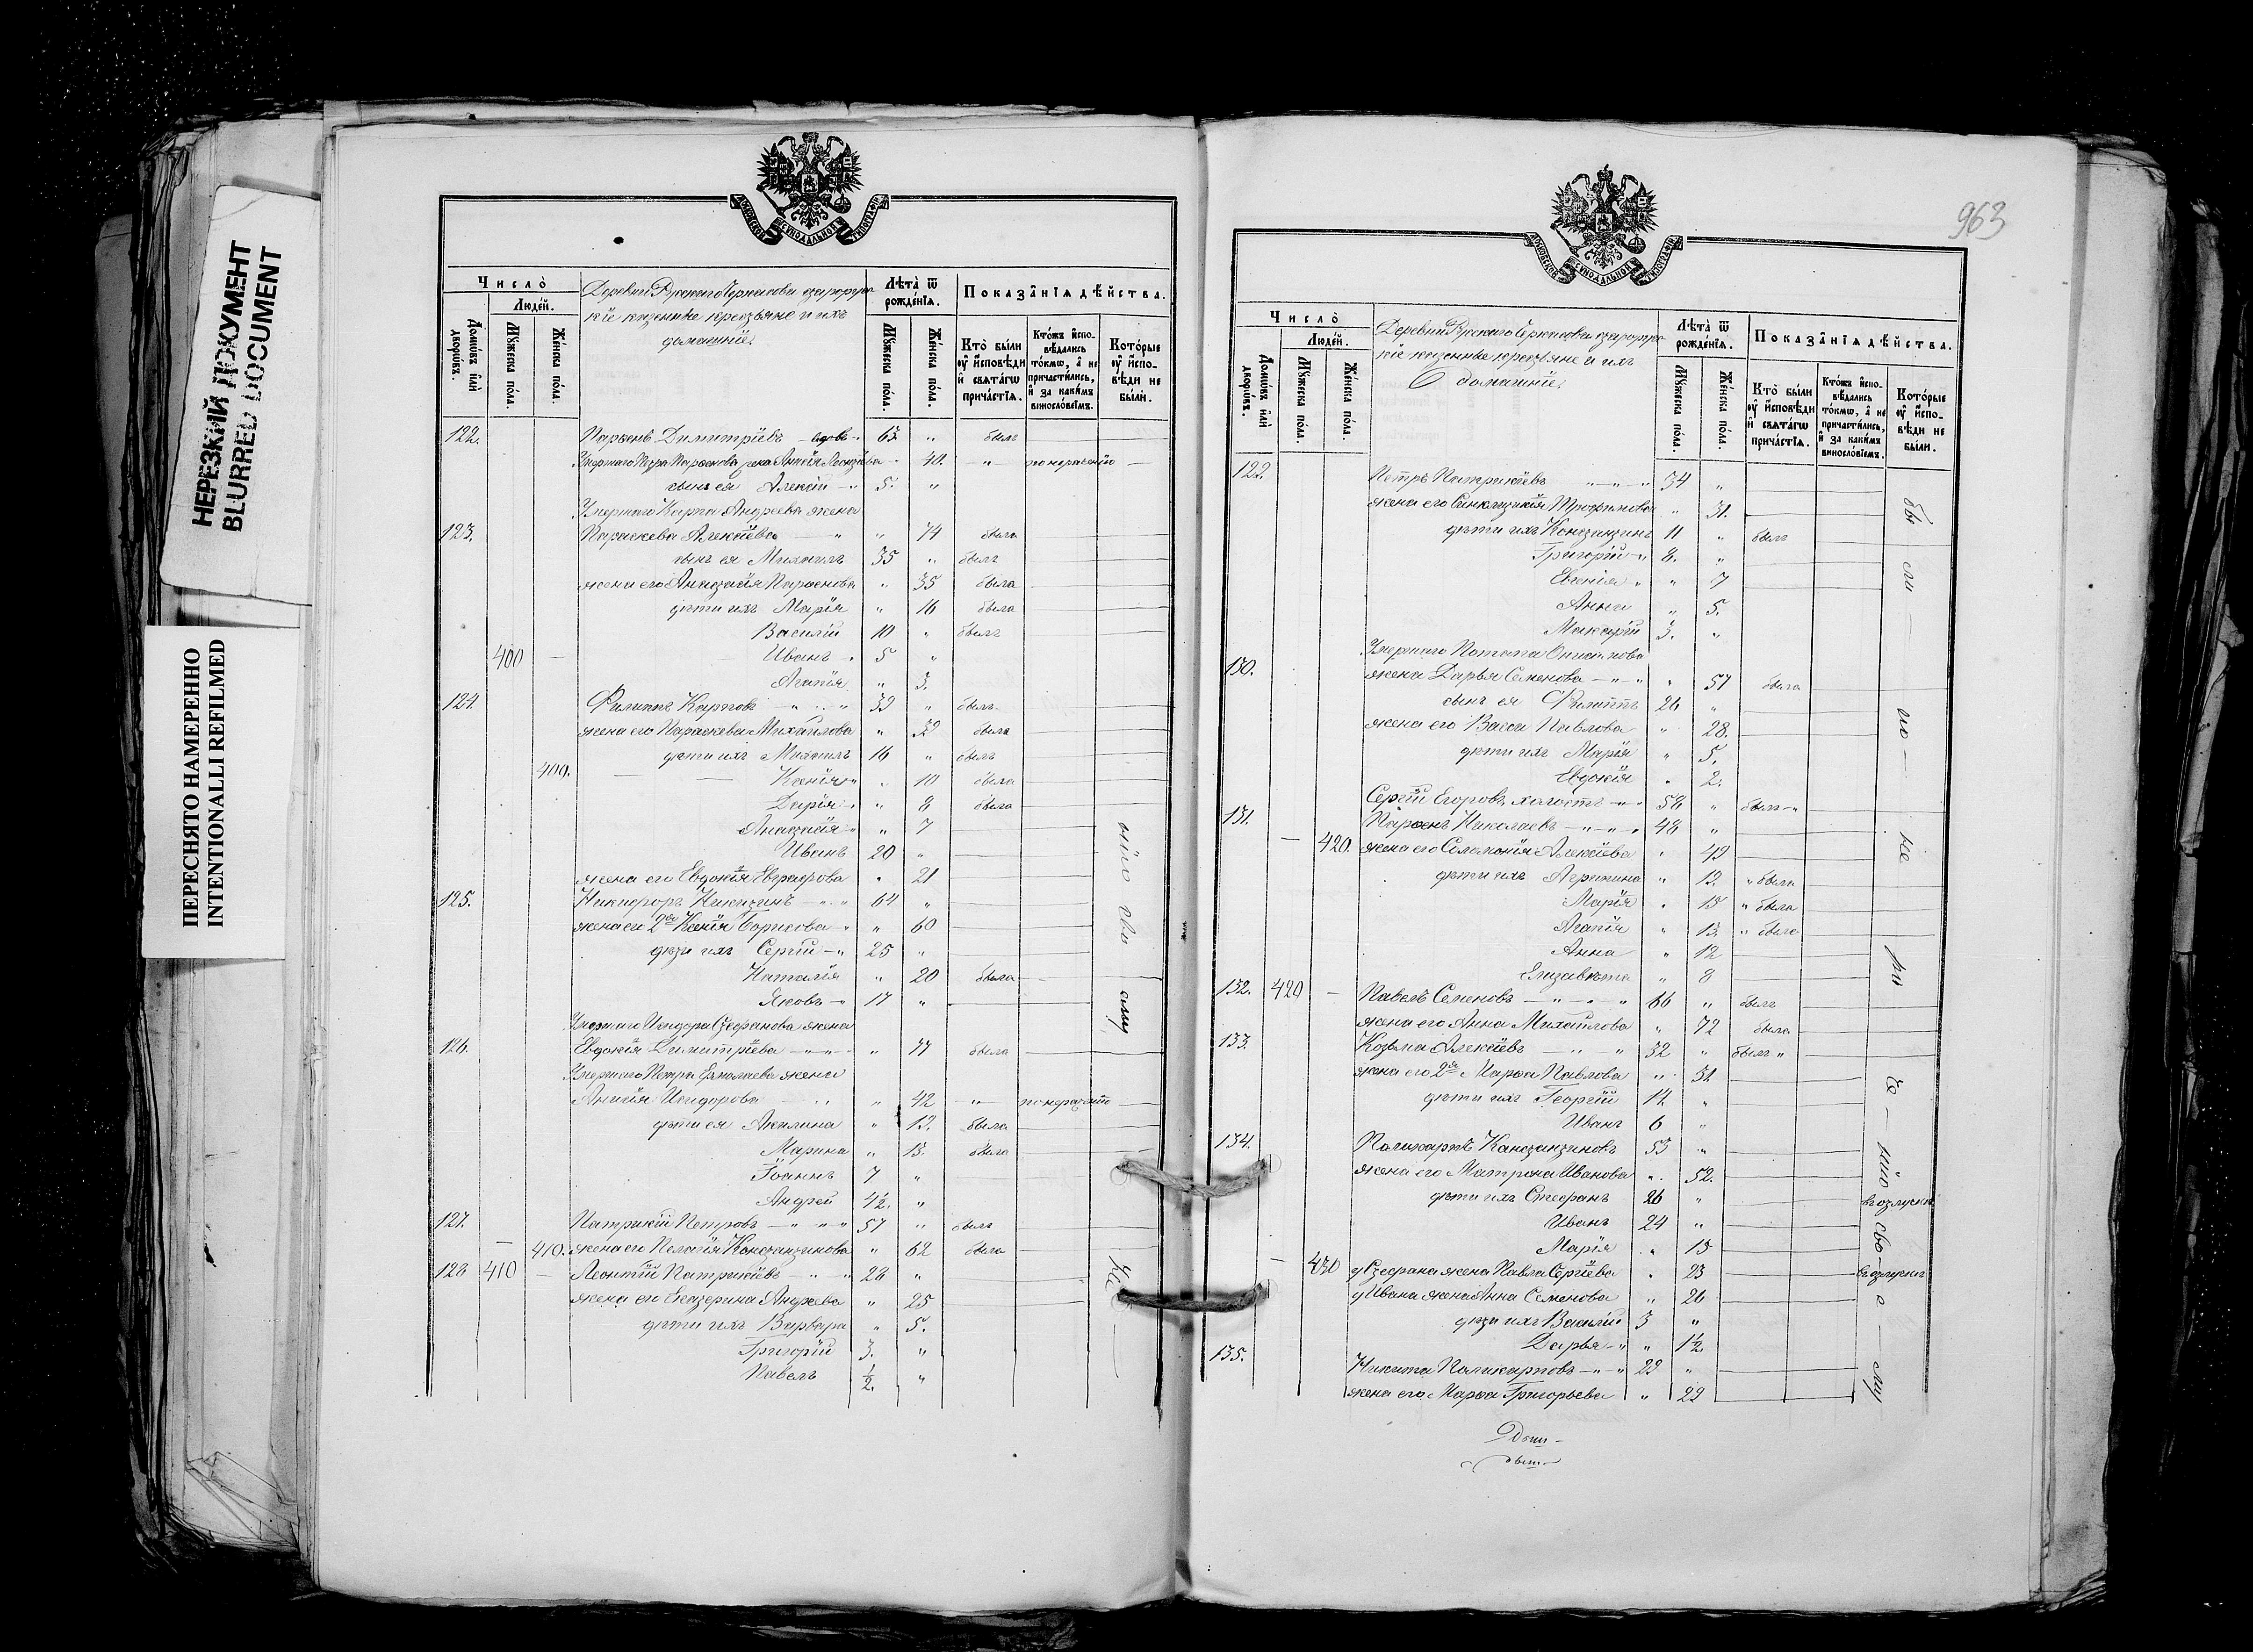 НЕРЕЗКИЙ ДОКУМЕНТ
BLURRED DOCUMENT
ПЕРЕСНЯТО НАМЕРЕННО
INTENTIONALLI REFILMED
МОСКОВСКОЙ СѴНОДАЛЬНОЙ ТИПОГРАФІИ
Число̀
Людей.
Домѡвъ и҆лѝ дворѡвъ.
Мꙋжеска пола.
Женска пола.
Деревни Русскаго Черкасова
кіе казенные крестьяне и ихъ
домашніе.
Лѣта̀ ѿ рождéнїѧ.
Мꙋжеска пола.
Женска пола.
Показáнїѧ дѣ́йства.
Кто̀ бы́ли оу҆ и҆сповѣди и҆ свѧта́гѡ прича́стїѧ.
Кто́жъ и҆спо-вѣ́дались то́кмѡ, а҆ не причасти́лись, и҆ за каки́мъ винослóвїемъ.
Кото́рые оу҆ и҆спо-вѣди не бы́ли.
122. Парѳенъ Димитріевъ вдовъ 63 " былъ
Умершаго Петра Парѳенова жена Анисія " 40. " по нераченію
сынъ ея Алексій 5. "
Умершаго Карпа Андреева жена
123. Параскева Алексіева " 74 была
сынъ ея Михаилъ 35 " былъ
жена его Анастасія Парѳенова " 35 была
дѣти ихъ Марія " 16 была
Василій 10 " былъ
400 Иванъ 5 "
Агапія " 3.
124. Филиппъ Карповъ 39 " былъ
жена его Параскева Михайлова " 39 была
дѣти ихъ Михаилъ 16 " былъ
400. Ксенія " 10 была
Дарія " 8 была
Анастасія " 7
Иванъ 20 "
жена его Евдокія Евграфова " 21
125. Никифоръ Никитинъ 64 "
жена его 2я Ксенія Борисова " 60
дѣти ихъ Сергій 25 "
Наталія " 20 была
Яковъ 17 "
Умершаго Исидора Стефанова жена
126. Евдокія Димитріева " 77 была
Умершаго Петра Ермолаева жена
Анисія Исидорова " 42 " по нерачію
дѣти ея Акилина " 19. была
Марина " 13. была
Іоаннъ 7 "
Андрей 4½. "
127. Патрикій Петровъ 57 " былъ
410. жена его Пелагія Константинова " 62 была
128 410 Леонтій Патрикіевъ 28 "
жена его Екатерина Андреева " 25
дѣти ихъ Варвара " 5.
Григорій 3. "
Павелъ ½. "
963
МОСКОВСКОЙ СѴНОДАЛЬНОЙ ТИПОГРАФІИ
Число̀
Людей.
Домѡвъ и҆лѝ дворѡвъ.
Мꙋжеска пола.
Женска пола.
Деревни Русскаго Черкасова
кіе казенные крестьяне и ихъ
домашніе.
Лѣта̀ ѿ рождéнїѧ.
Мꙋжеска пола.
Женска пола.
Показáнїѧ дѣ́йства.
Кто̀ бы́ли оу҆ и҆сповѣди и҆ свѧта́гѡ прича́стїѧ.
Кто́жъ и҆спо-вѣ́дались то́кмѡ, а҆ не причасти́лись, и҆ за каки́мъ винослóвїемъ.
Кото́рые оу҆ и҆спо-вѣди не бы́ли.
122. Петръ Патрикіевъ 34 "
жена его Синклитикія Трофимова " 31.
дѣти ихъ Константинъ 11 " былъ
Григорій 8. "
Евгенія " 7
Анна " 5.
Макарій 3. "
Умершаго Потапа
130. жена Дарья Семенова " 57 была
сынъ ея Филиппъ 26 "
жена его Васса Павлова " 28.
дѣти ихъ Марія " 5.
Евдокія " 2.
Сергій Егоровъ холостъ 58 " былъ
131. Парѳенъ Николаевъ 48 "
420. жена его Соломонія Алексіева " 49
дѣти ихъ Агрипина " 19. была
Марія " 15 была
Агапія " 13. была
Анна " 12
Елизавета " 8
132. 420 Павелъ Семеновъ 66 " былъ
жена его Анна Михайлова " 72 была
133. Козьма Алексіевъ 32 " былъ
жена его 2я Марѳа Павлова " 31
дѣти ихъ Георгій 14 "
Иванъ 6 "
134. Поликарпъ Константиновъ 53 "
жена его Матрона Иванова " 52.
дѣти ихъ Стефанъ 26 " въ отлучкѣ
Иванъ 24 "
Марія " 15
430 у Стефана жена Павла Сергіева " 23 въ отлучкѣ
у Ивана жена Анна Семенова " 26
дѣти ихъ Василій 3 "
Дарья " 1½.
135. Никита Поликарповъ 29 "
жена его Марѳа Григорьева " 29